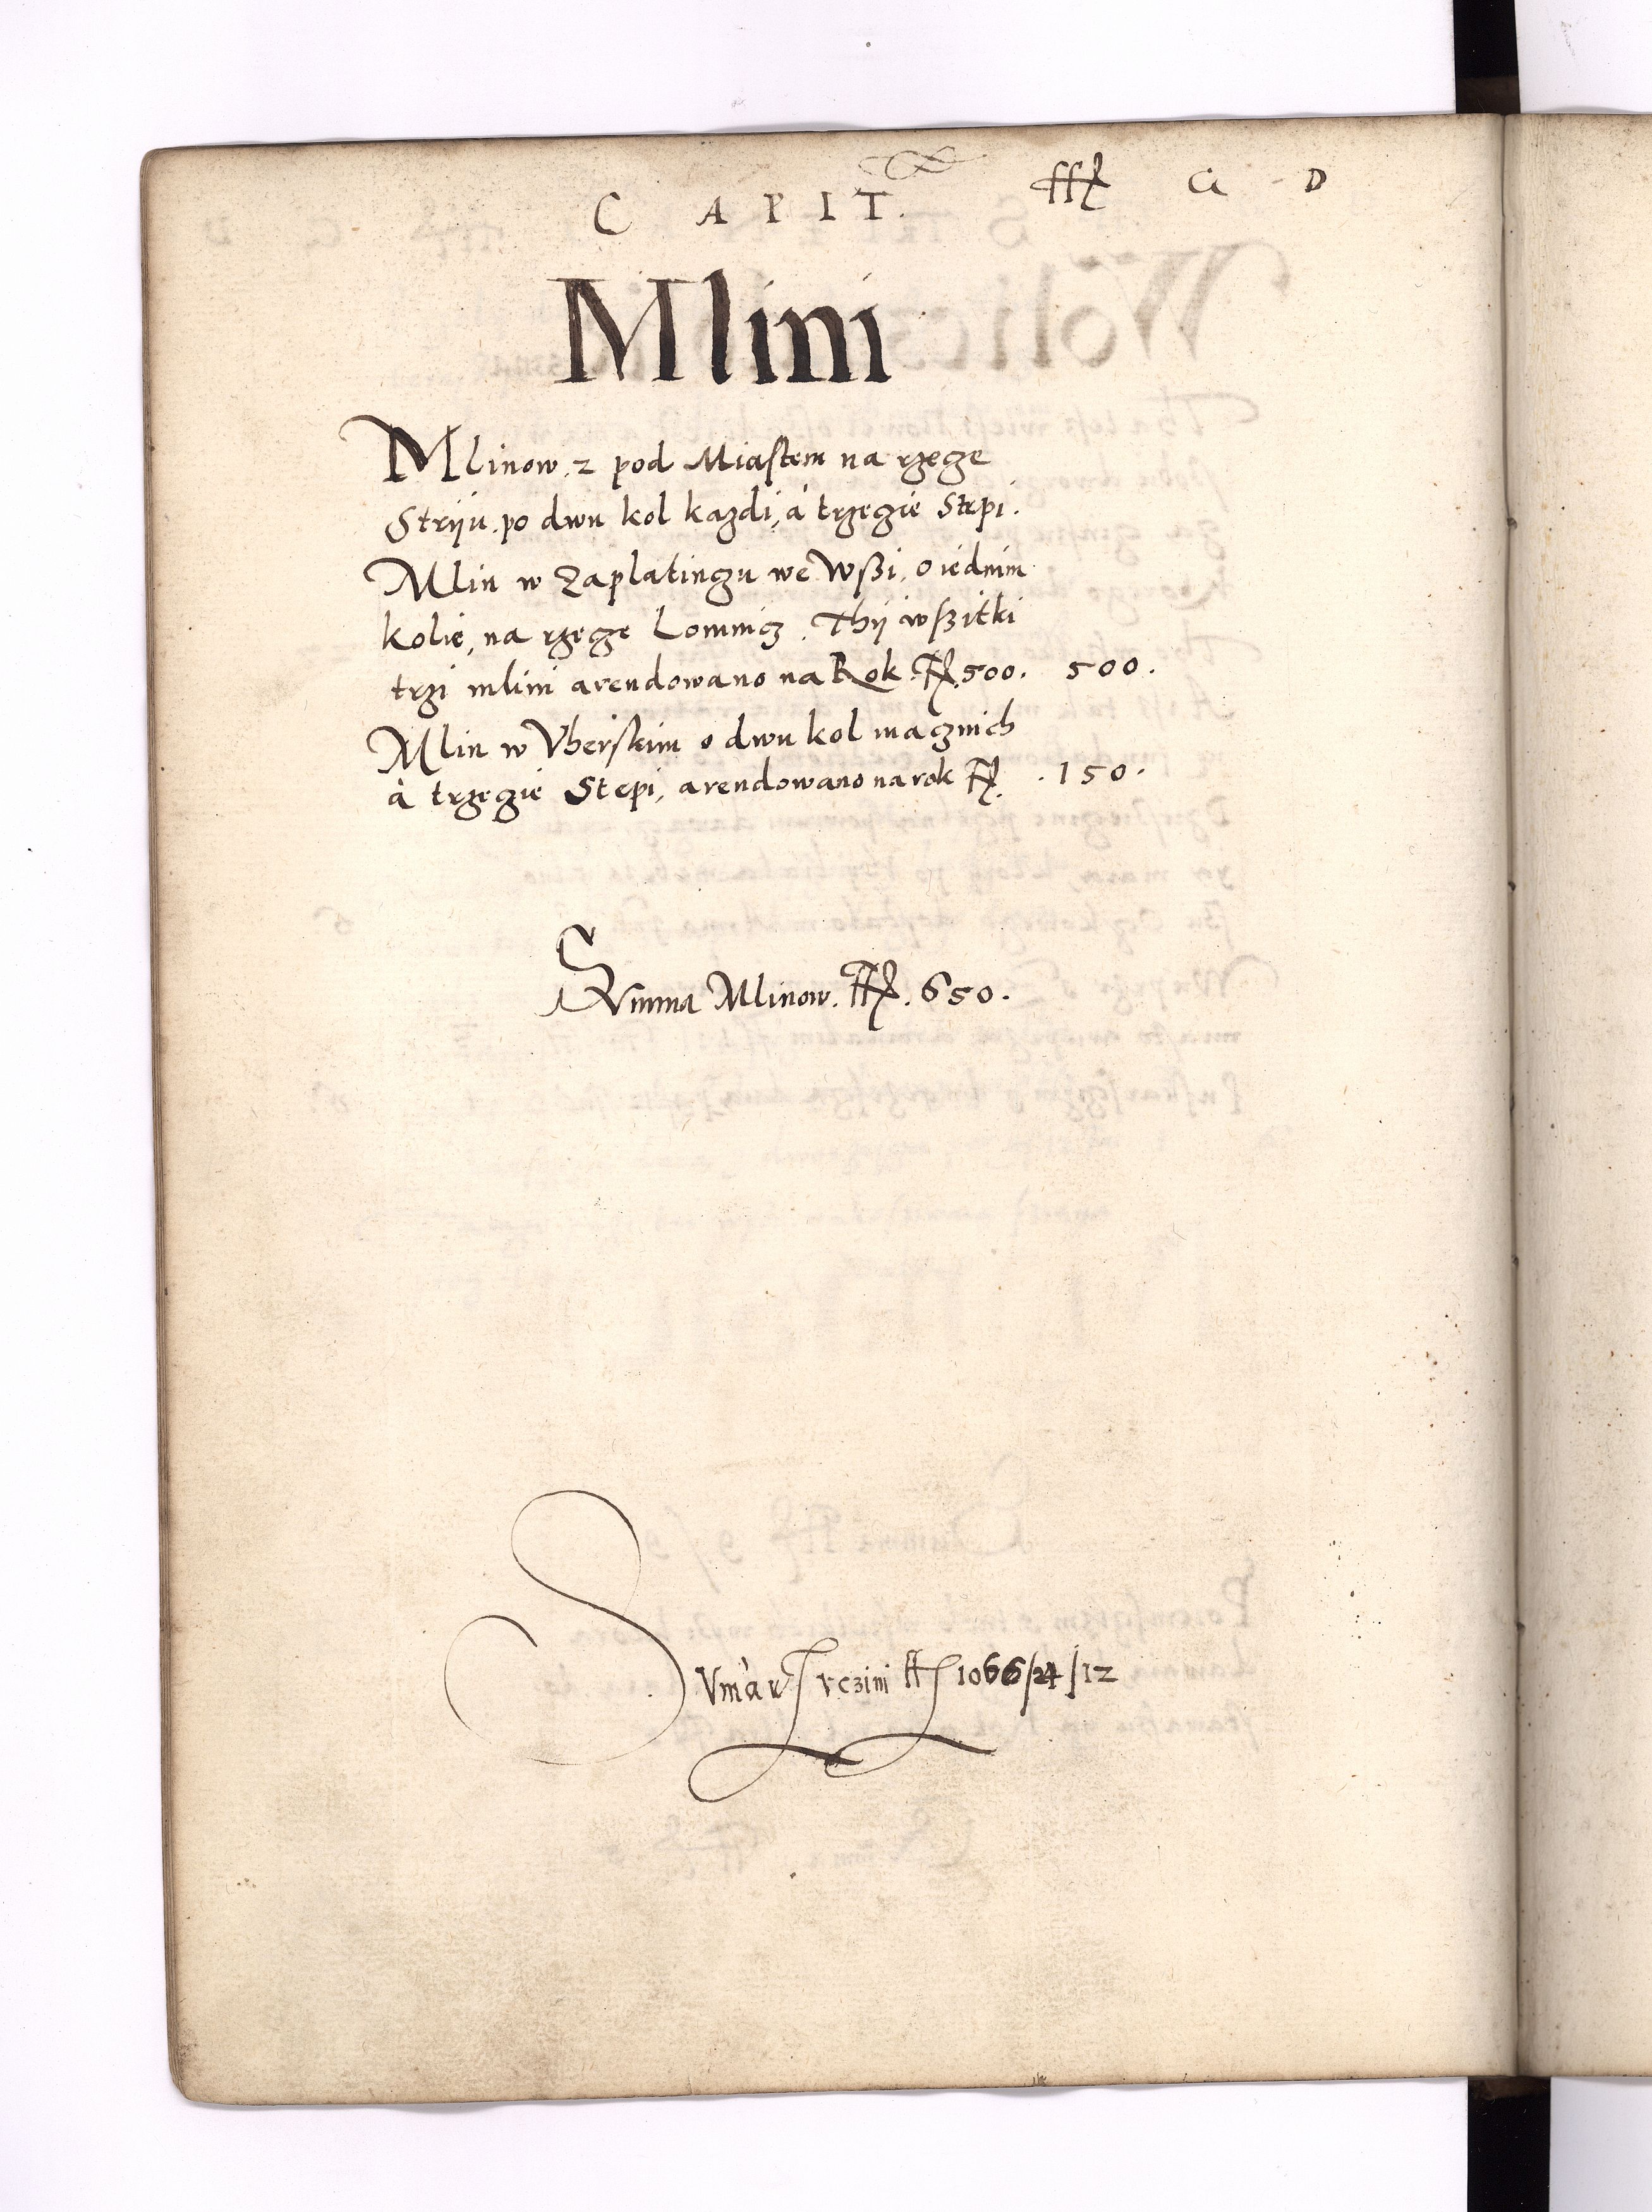 CAPIT. ff G D
Mlini
Mlinow. 2 pod Miastem na rzecze
Striju. po dwu kol kazdi, à trzecie Stepi.
Mlin w Zaplatinczu we Wszi, o iednim
kolie, na rzecze Lomnicz. Thij wszitki
trzi mlini arendowano na Rok. ff. 500. 500.
Mlin w Vherskim o dwu kol macznich
à trzecie Stepi, arendowano na rok ff. 150.
Summa Mlinow. ff. 650.
ff 1066/24/12